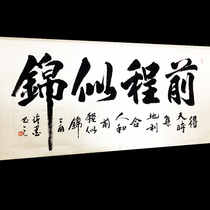 前程似錦
得
天時
集
地利
合
人和
前
程似
錦